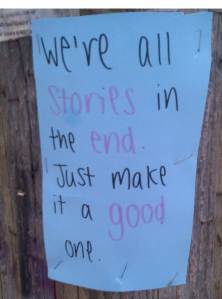 We're all
Stories in
the end.
Just make
it a good
one.